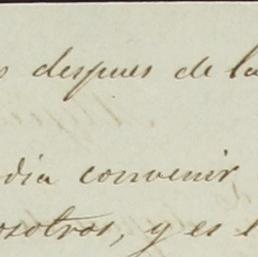 s despues de la
dia convenir
osotros, y es l